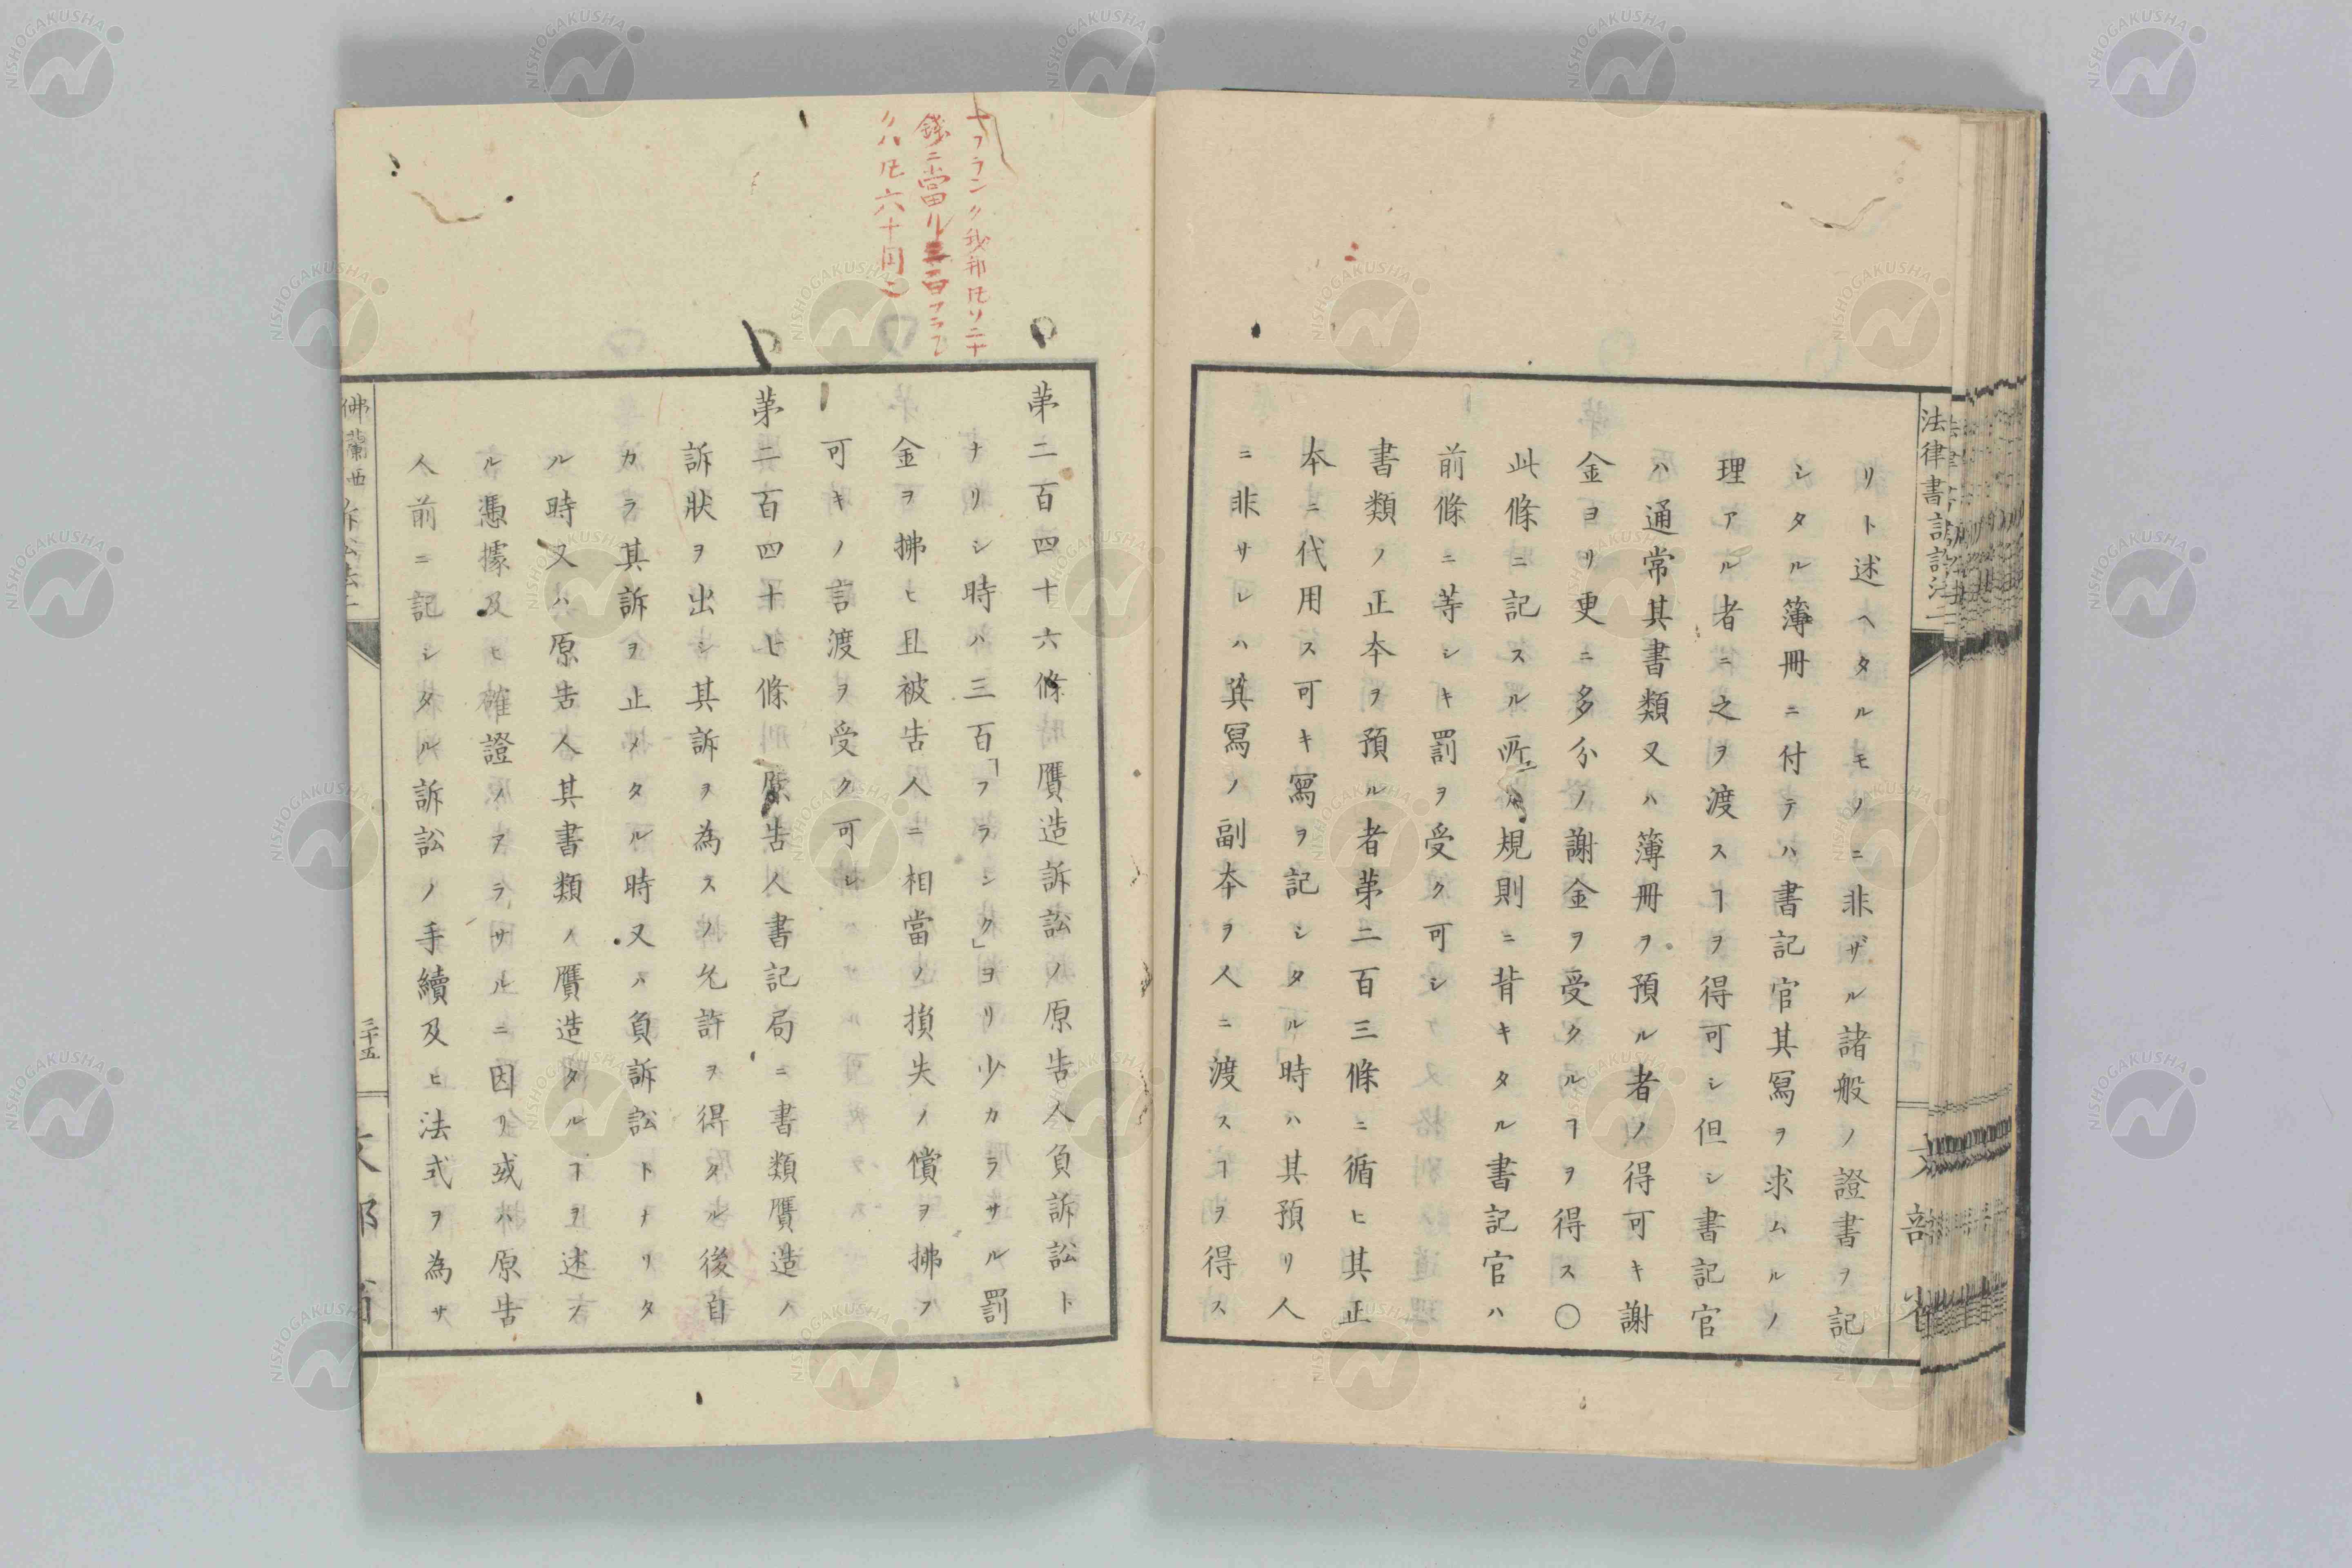 リト述ヘタルモノニ非ザル諸般ノ證書ヲ記
シタル簿冊ニ付テハ書記官其冩ヲ求ムルノ
理アル者ニ之ヲ渡スヿヲ得可シ但シ書記官
ハ通常其書類又ハ簿冊ヲ預ル者ノ得可キ謝
金ヨリ更ニ多分ノ謝金ヲ受クルヿヲ得ス〇
此條ニ記スル所ノ規則ニ背キタル書記官ハ
前條ニ等シキ罰ヲ受ク可シ
書類ノ正本ヲ預ル者第二百三條ニ循ヒ其正
本ニ代用ス可キ冩ヲ記シタル時ハ其預リ人
ニ非サレハ眞冩ノ副本ヲ人ニ渡スヿヲ得ス
十フランク我邦凡ソ二十
錢ニ當ル三百フラン
クハ凡六十円ニ
第二百四十六條 贋造訴訟ノ原告人負訴訟ト
ナリシ時ハ三百「フランク」ヨリ少カラサル罰
金ヲ拂ヒ且被告人ニ相當ノ損失ノ償ヲ拂フ
可キノ言渡ヲ受ク可シ
第二百四十七條 原告人書記局ニ書類贋造ノ
訴狀ヲ出シ其訴ヲ為スノ允許ヲ得タル後自
カラ其訴ヲ止メタル時又ハ負訴訟トナリタ
ル時又ハ原告人其書類ノ贋造タルヿヲ述フ
ル憑據及ヒ確證ノアラサルニ因リ或ハ原告
人前ニ記シタル訴訟ノ手續及ヒ法式ヲ為サ
佛蘭西
三十五
文部省
NISHOGAKUSHA